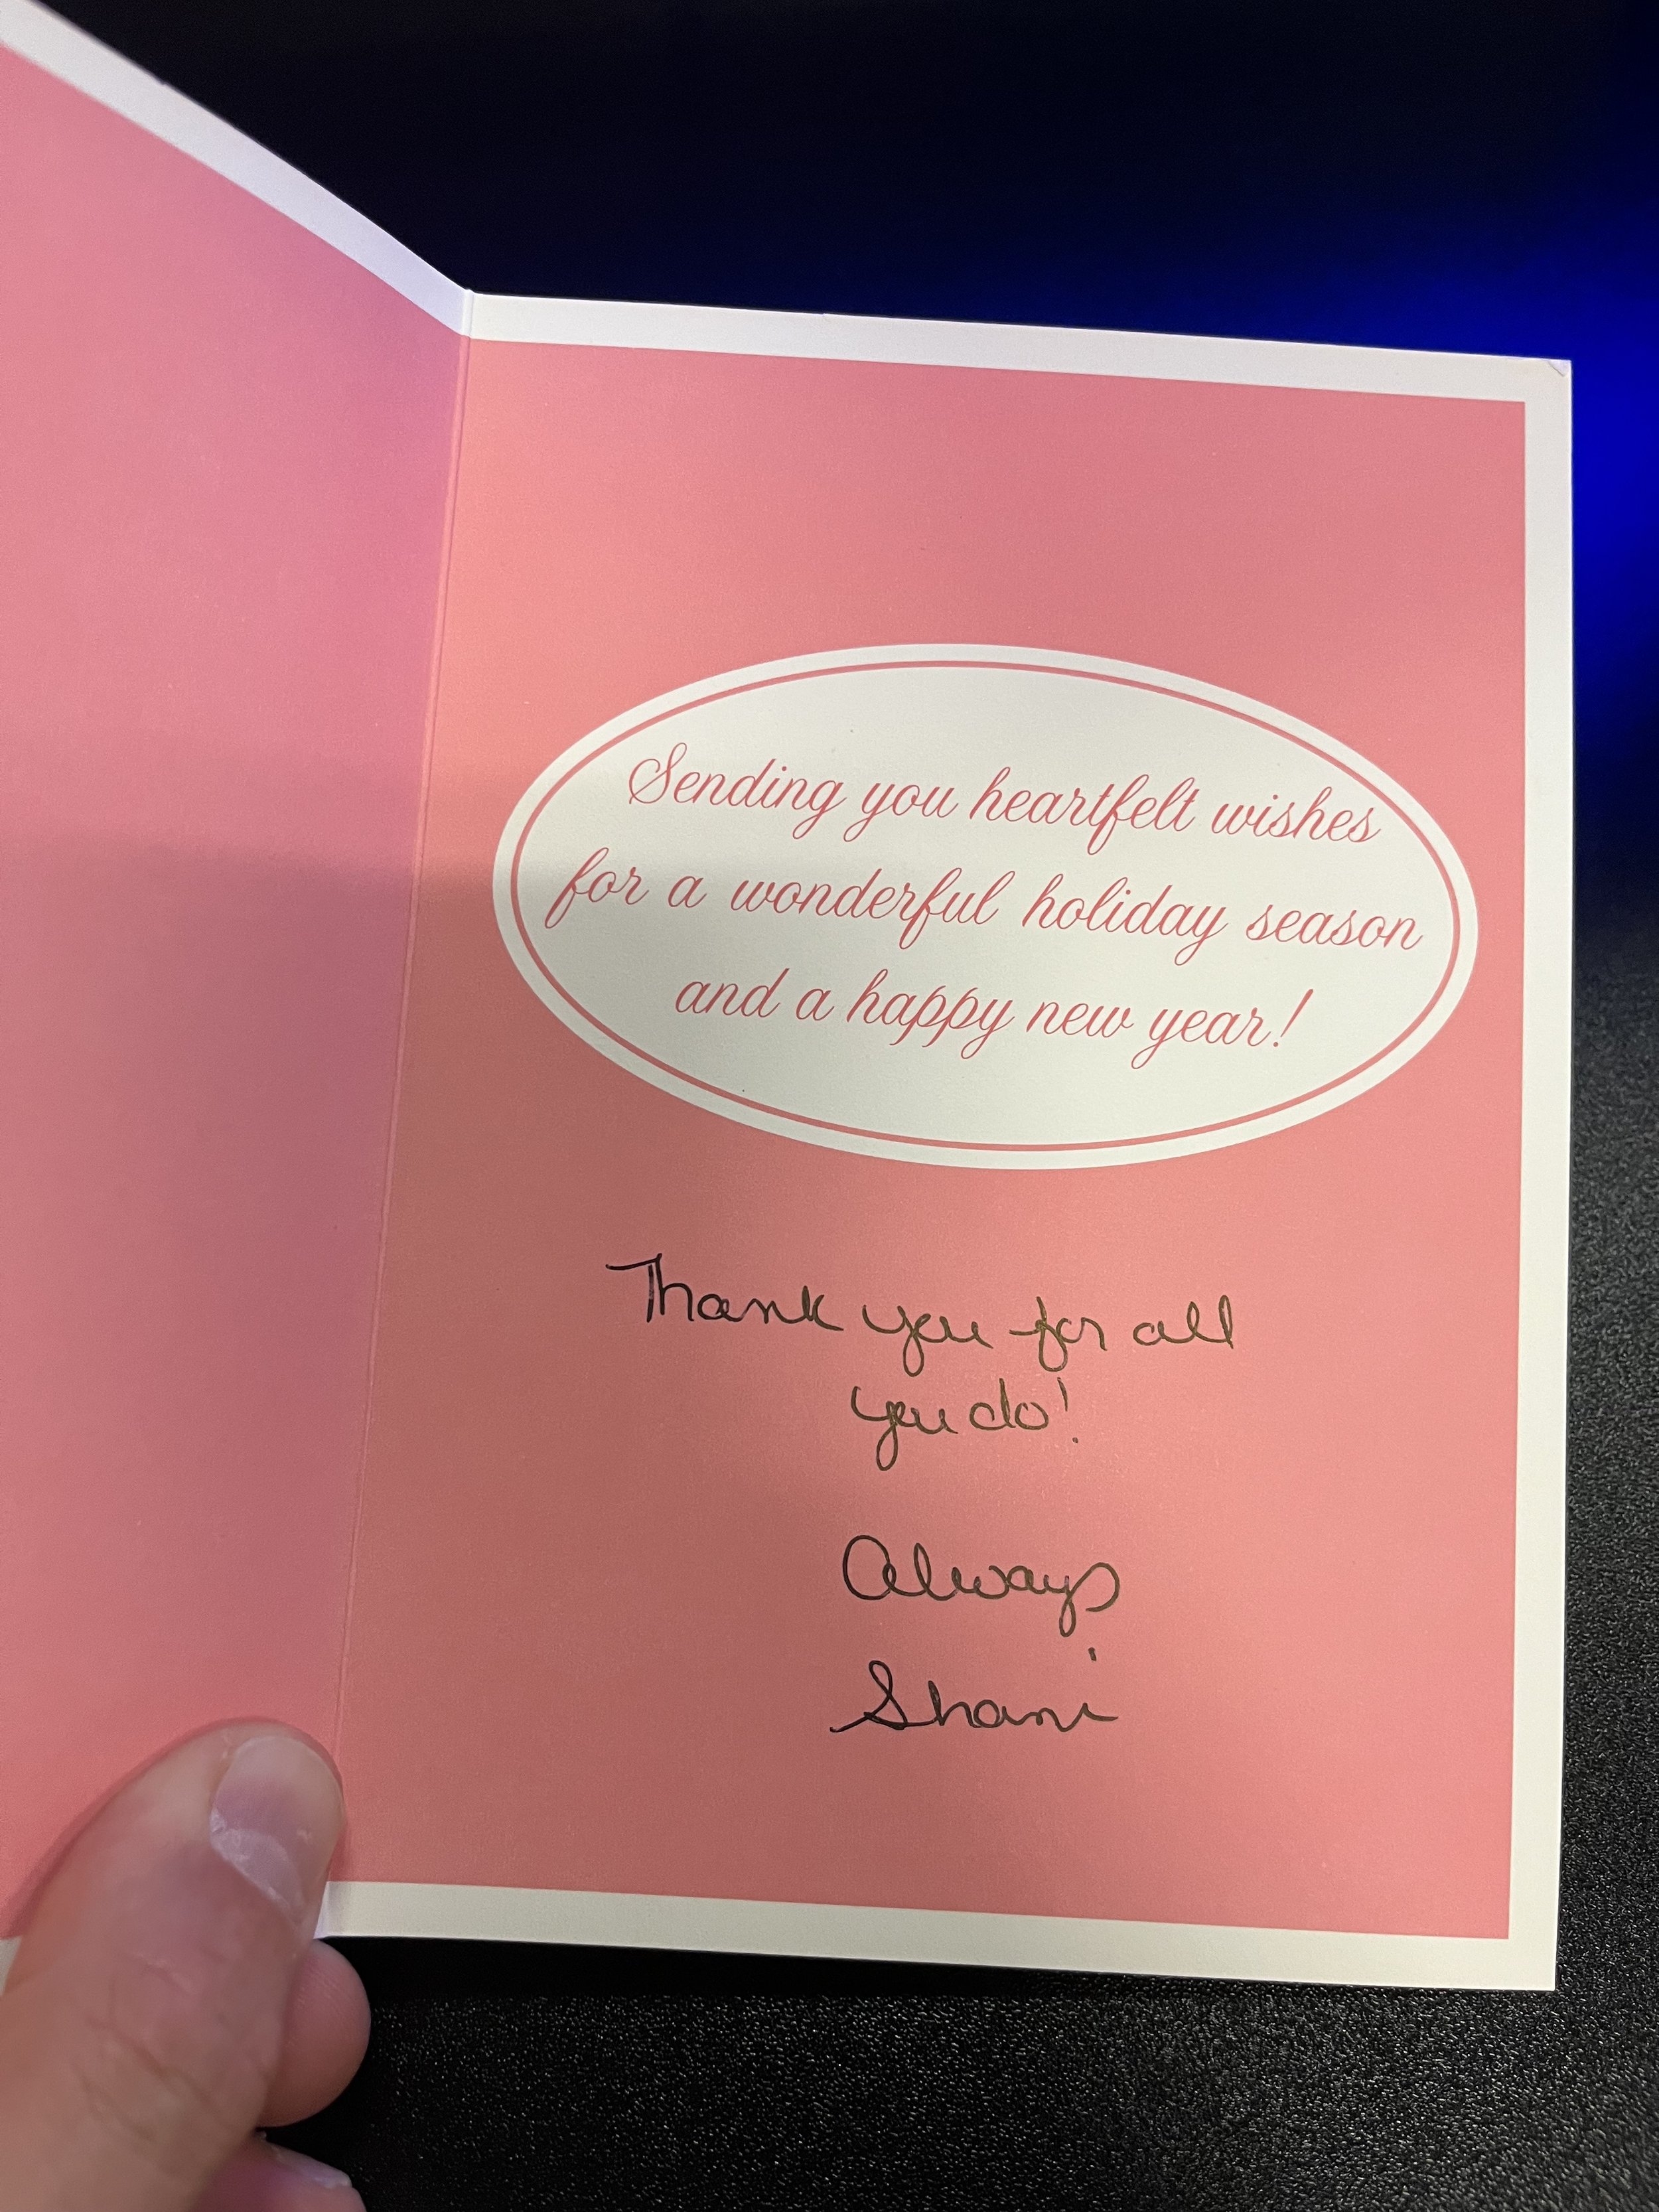 Sending you heartfelt wishes
for a wonderful holiday season
and a happy new year!
Thank you for all
you do!
Always
Shani